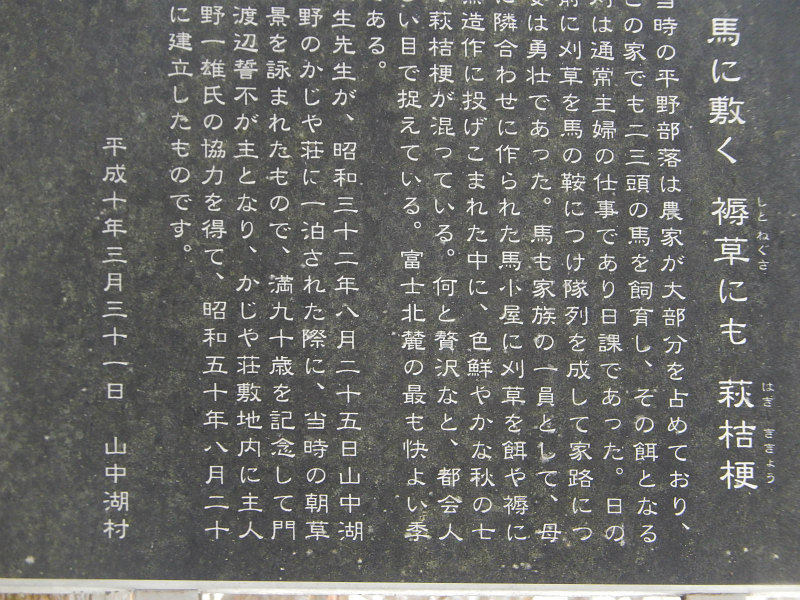 馬に敷く 褥草にも 萩桔梗
しとねぐさ
はぎ ききょう
当時の平野部落は農家が大部分を占めており、
の家でも二三頭の馬を飼育し、その餌となる
は通常主婦の仕事であり日課であった。日の
前に刈草を馬の鞍につけ隊列を成して家路につ
は勇壮であった。馬も家族の一員として、母
隣合わせに作られた馬小屋に刈草を餌や褥に
造作に投げこまれた中に、色鮮やかな秋の七
萩桔梗が混っている。何と贅沢なと、都会人
い目で捉えている。富士北麓の最も快よい季
ある。
生先生が、昭和三十二年八月二十五日山中湖
野のかじや荘に一泊された際に、当時の朝草
景を詠まれたもので、満九十歳を記念して門
渡辺誓不が主となり、かじや荘敷地内に主人
野一雄氏の協力を得て、昭和五十年八月二十
に建立したものです。
平成十年三月三十一日 山中湖村